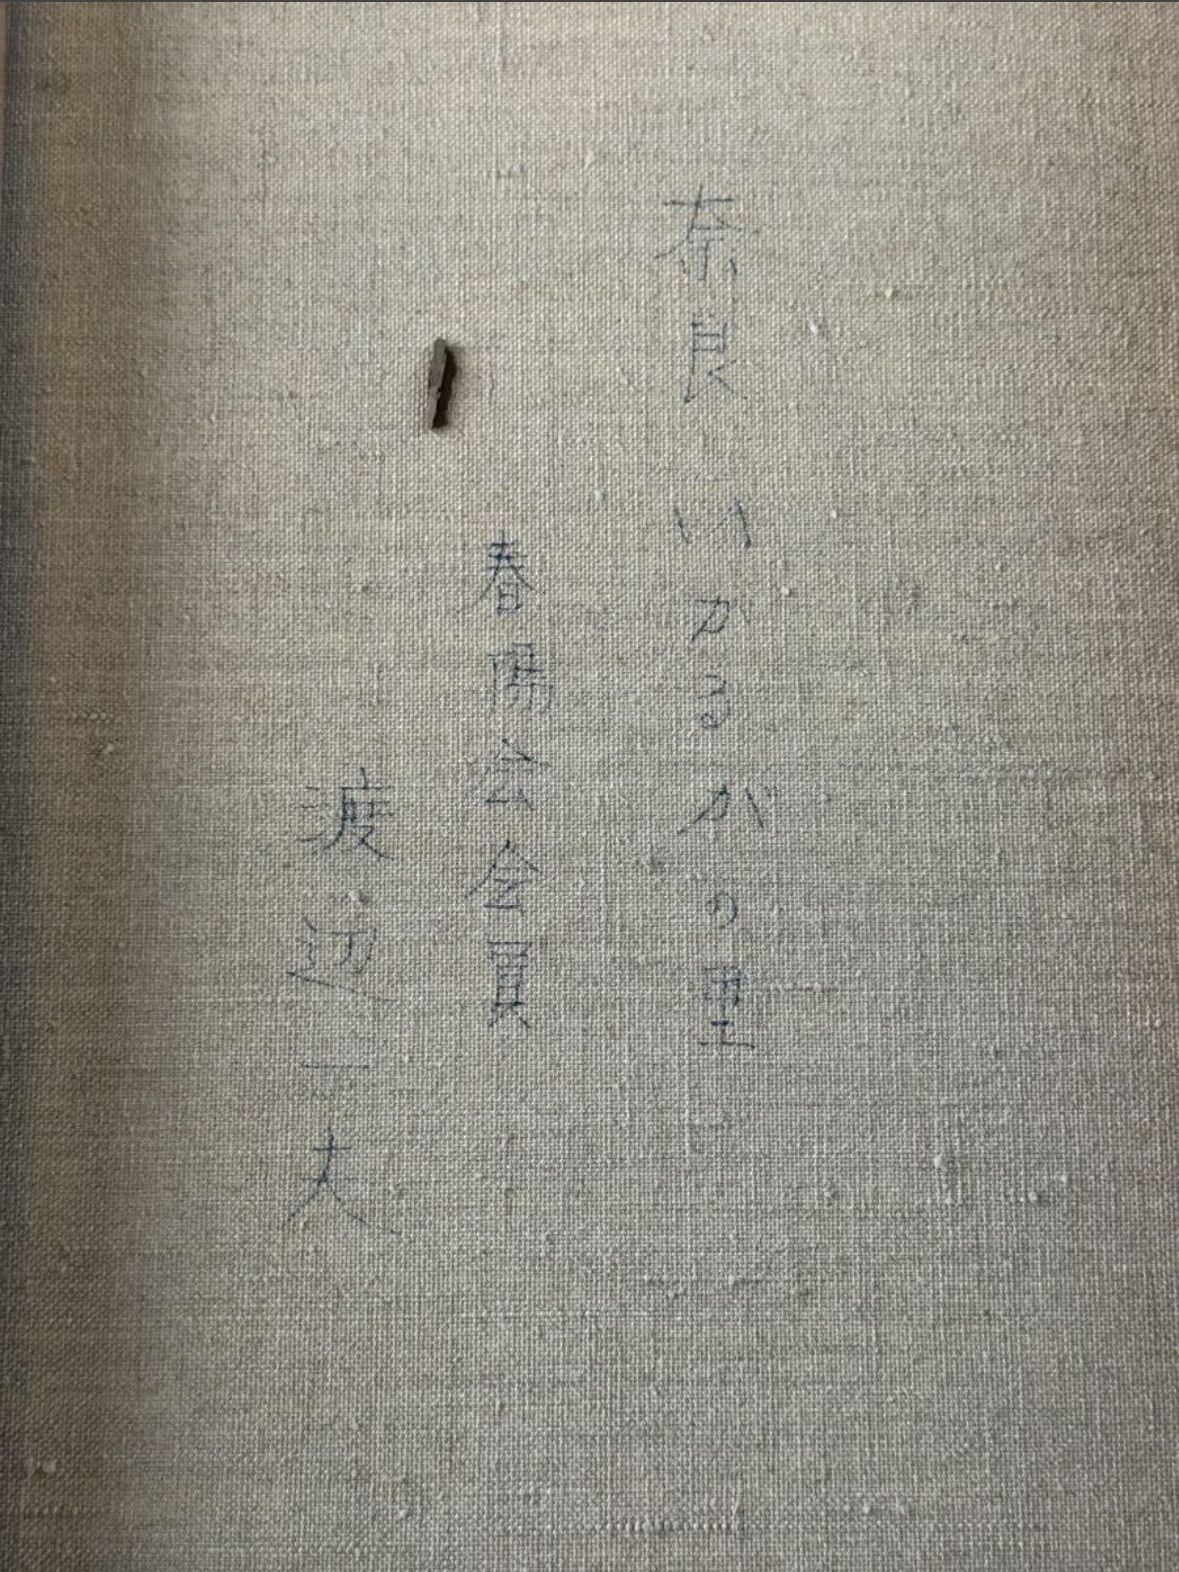 奈良いかるがの里
春陽会会員
渡辺一夫